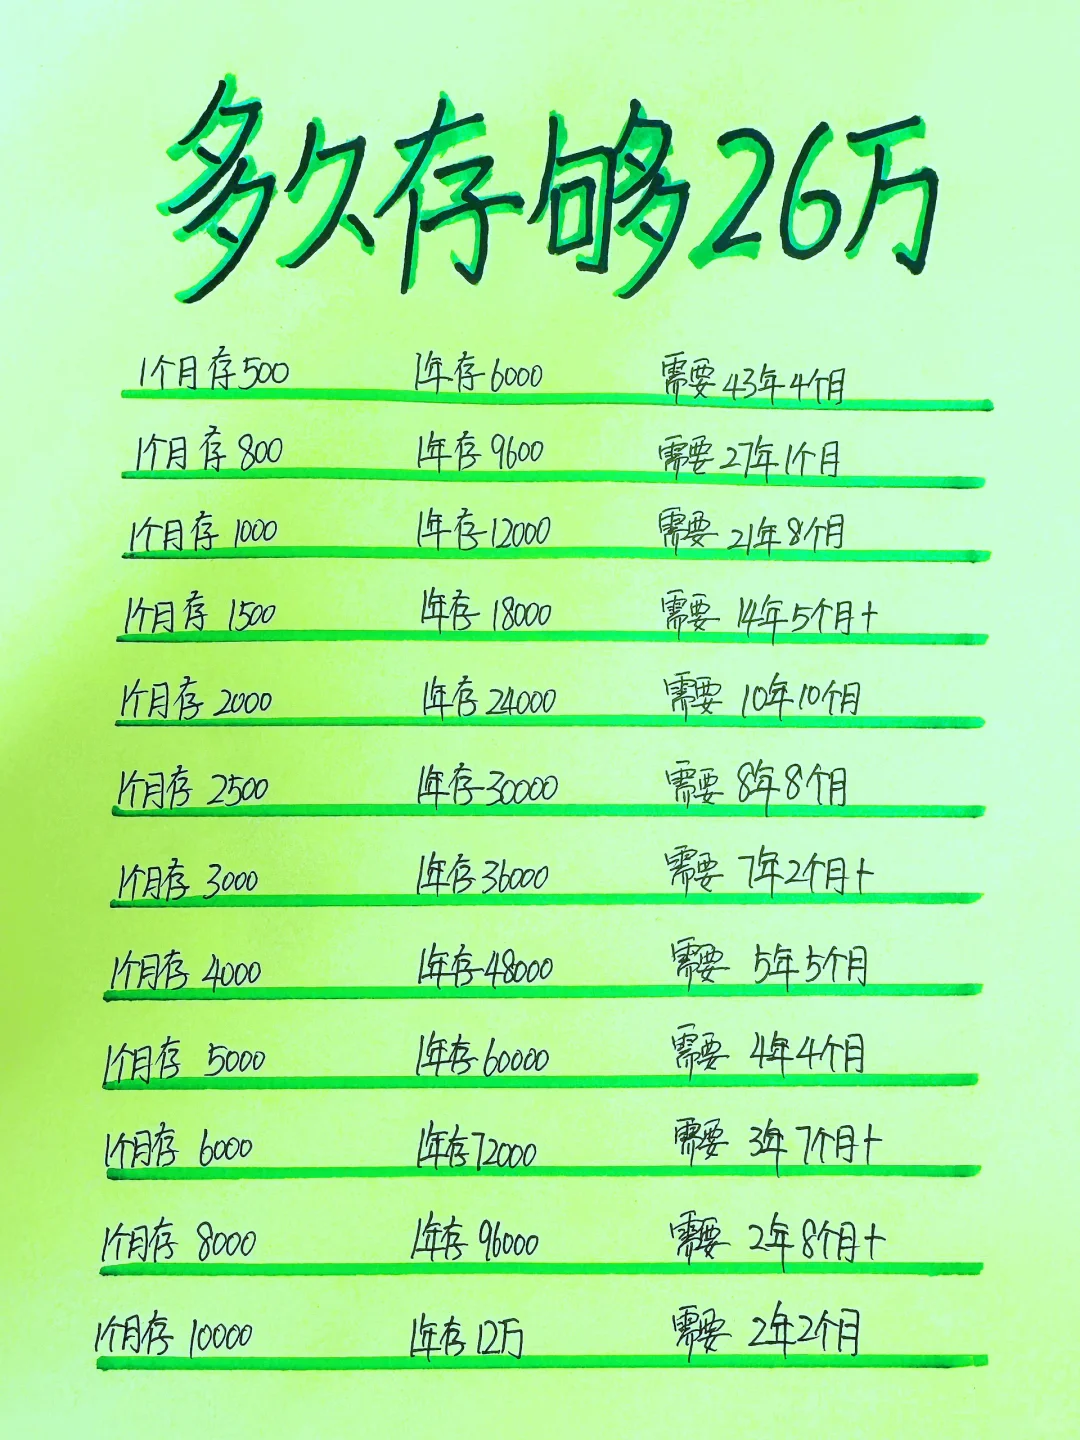 多久存够26万
1个月存500 1年存6000 需要43年4个月
1个月存800 1年存9600 需要27年1个月
1个月存1000 1年存12000 需要21年8个月
1个月存1500 1年存18000 需要14年5个月+
1个月存2000 1年存24000 需要10年10个月
1个月存2500 1年存30000 需要8年8个月
1个月存3000 1年存36000 需要7年2个月+
1个月存4000 1年存48000 需要5年5个月
1个月存5000 1年存60000 需要4年4个月
1个月存6000 1年存72000 需要3年7个月+
1个月存8000 1年存96000 需要2年8个月+
1个月存10000 1年存12万 需要2年2个月